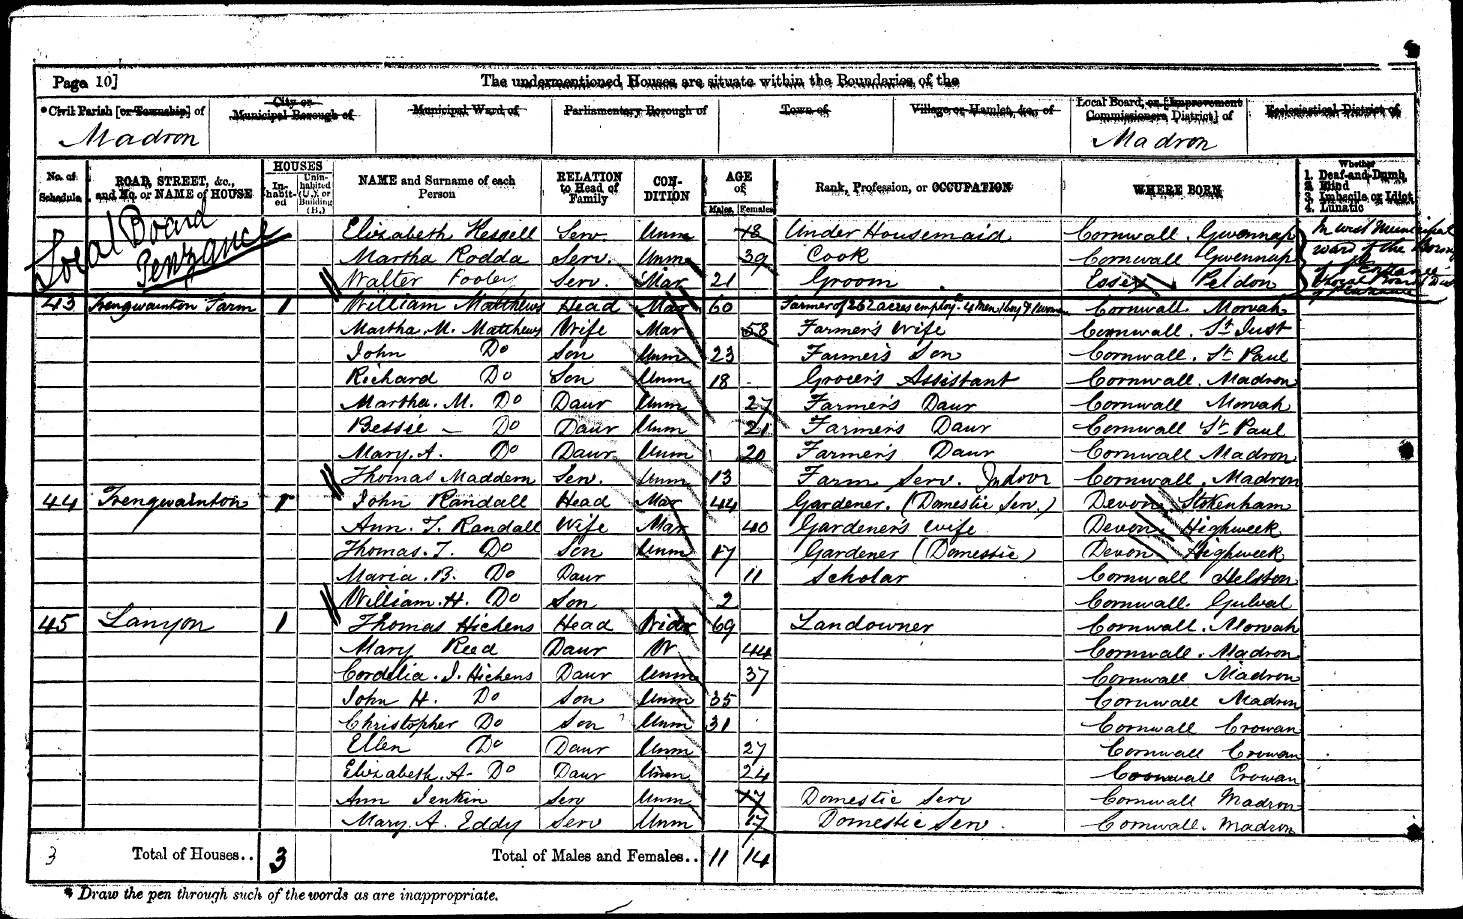 Page 10]
The undermentioned Houses are situate within the Boundaries of the
*Civil Parish [or Township] of
City or Municipal Borough of
Municipal Ward of
Parliamentary Borough of
Town of
Village or Hamlet, &c., of
Local Board, or [Improvement Commissioners District] of
Ecclesiastical District of
Madron
Madron
No. of Schedule
ROAD, STREET, &c., and No. or NAME of HOUSE
HOUSES
In-habit-ed
Unin-habited (U.), or Building (B.)
NAME and Surname of each Person
RELATION to Head of Family
CON-DITION
AGE of
Males.
Females
Rank, Profession, or OCCUPATION
WHERE BORN
Whether
1. Deaf-and-Dumb
2. Blind
3. Imbecile or Idiot
4. Lunatic
Local Board
Penzance
Elizabeth Hessell Serv. Unm 18 Under Housemaid Cornwall. Gwennap
Martha Rodda Serv. Unm 39 Cook Cornwall Gwennap
Walter Fooley Serv. Mar 21 Groom Essex Peldon
In west Municipal ward of the
43 Trengwainton Farm 1 William Matthews Head Mar 60 Farmer of 262 acres employg 4 men 1 boy & 1 woman Cornwall Morvah
Martha. M. Matthews Wife Mar 58 Farmer's Wife Cornwall. St Just
John Do Son Unm 23 Farmer's Son Cornwall. St Paul
Richard Do Son Unm 18 Grocer's Assistant Cornwall. Madron
Martha. M. Do Daur Unm 27 Farmer's Daur Cornwall Morvah
Bessie Do Daur Unm 21 Farmer's Daur Cornwall St Paul
Mary. A. Do Daur Unm 20 Farmer's Daur Cornwall Madron
Thomas Maddern Serv. Unm 13 Farm Serv. Indoor Cornwall. Madron
44 Trengwainton 1 John Randall Head Mar 44 Gardener. (Domestic Serv.) Devon Stokenham
Ann. T. Randall Wife Mar 40 Gardener's Wife Devon Highweek
Thomas. T. Do Son Unm 17 Gardener (Domestic) Devon Highweek
Maria. B. Do Daur 11 Scholar Cornwall Helston
William. H. Do Son 2 Cornwall. Gulval
45 Lanyon 1 Thomas Hichens Head Widr 69 Landowner Cornwall. Morvah
Mary Reed Daur W 44 Cornwall. Madron
Cordelia. J. Hichens Daur Unm 37 Cornwall Madron
John H. Do Son Unm 35 Cornwall Madron
Christopher Do Son Unm 31 Cornwall Crowan
Ellen Do Daur Unm 27 Cornwall Crowan
Elizabeth. A. Do Daur Unm 24 Cornwall Crowan
Ann Jenkin Serv Unm 17 Domestic Serv Cornwall Madron
Mary. A. Eddy Serv Unm 17 Domestic Serv. Cornwall. Madron
3 Total of Houses.. 3 Total of Males and Females.. 11 14
* Draw the pen through such of the words as are inappropriate.